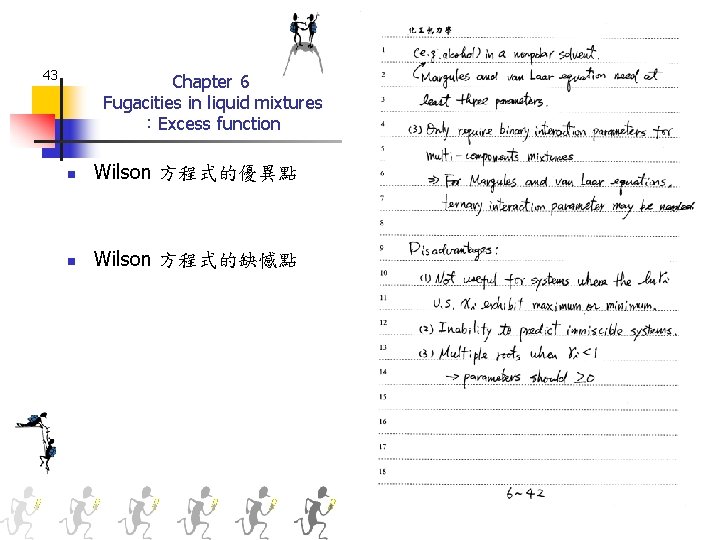 43
Chapter 6
Fugacities in liquid mixtures
：Excess function
Wilson 方程式的優異點
Wilson 方程式的缺憾點
化工熱力學
1 (e.g. alcohol) in a nonpolar solvent.
2 Margules and van Laar equation need at
3 least three parameters.
4 (3) Only require binary interaction parameters for
5 multi-components mixtures
6 ⇒ For Margules and van Laar equations,
7 ternary interaction parameter may be needed.
8
9 Disadvantages:
10 (1) Not useful for systems where the lnγi
11 v.s. xi exhibit maximum or minimum.
12 (2) Inability to predict immiscible systems.
13 (3) Multiple roots when γi<1
14 → parameters should ≥0
15
16
17
18
6~42